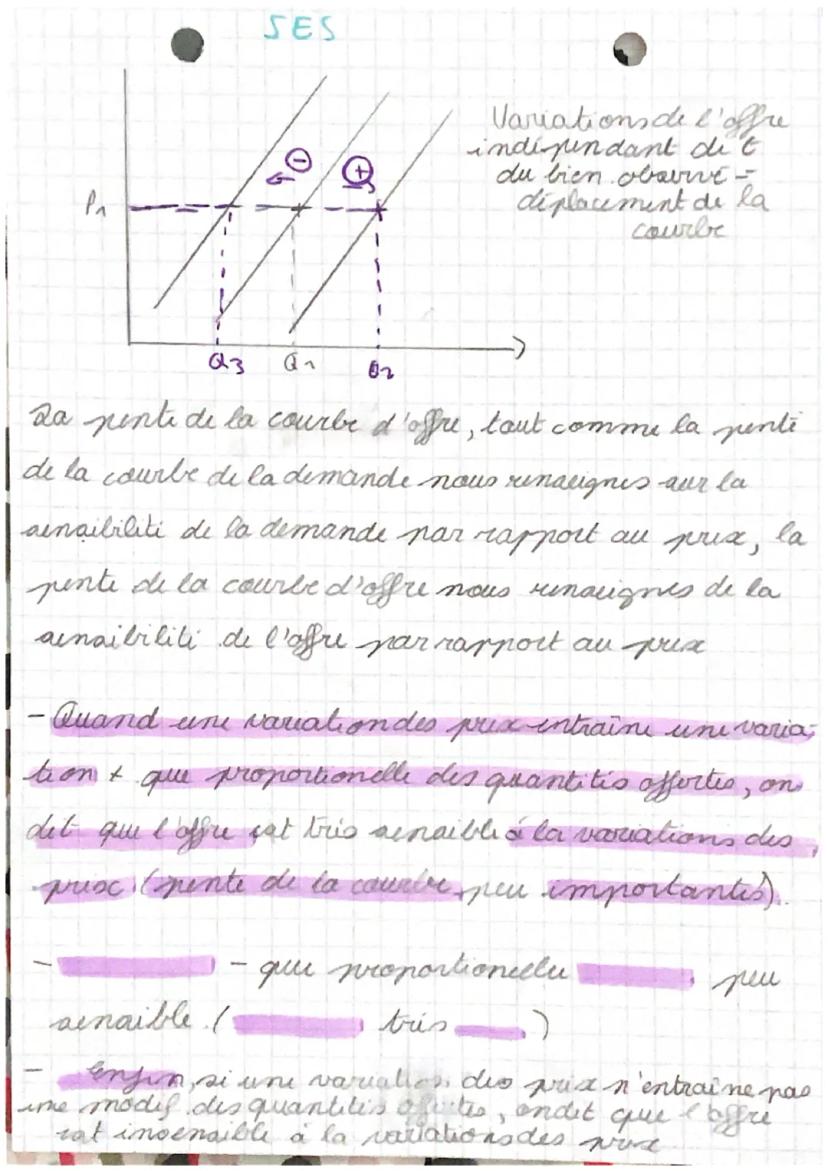 SES
Variations de l'offre
indépendant de t
du bien observé =
déplacement de la
courbe
⊖
⊕
P1
Q3 Q1 Q2
La pente de la courbe d'offre, tout comme la pente
de la courbe de la demande nous renseignes sur la
sensibilité de la demande par rapport au prix, la
pente de la courbe d'offre nous renseignes de la
sensibilité de l'offre par rapport au prix
- Quand une variation des prix entraîne une varia-
tion + que proportionelle des quantités offertes, on
dit que l'offre est très sensible à la variations des
prix (pente de la courbe peu importantes).
- - que proportionelle peu
sensible. ( très )
- Enfin, si une variation des prix n'entraîne pas
une modif des quantités offertes, on dit que l'offre
est insensible à la variations des prix